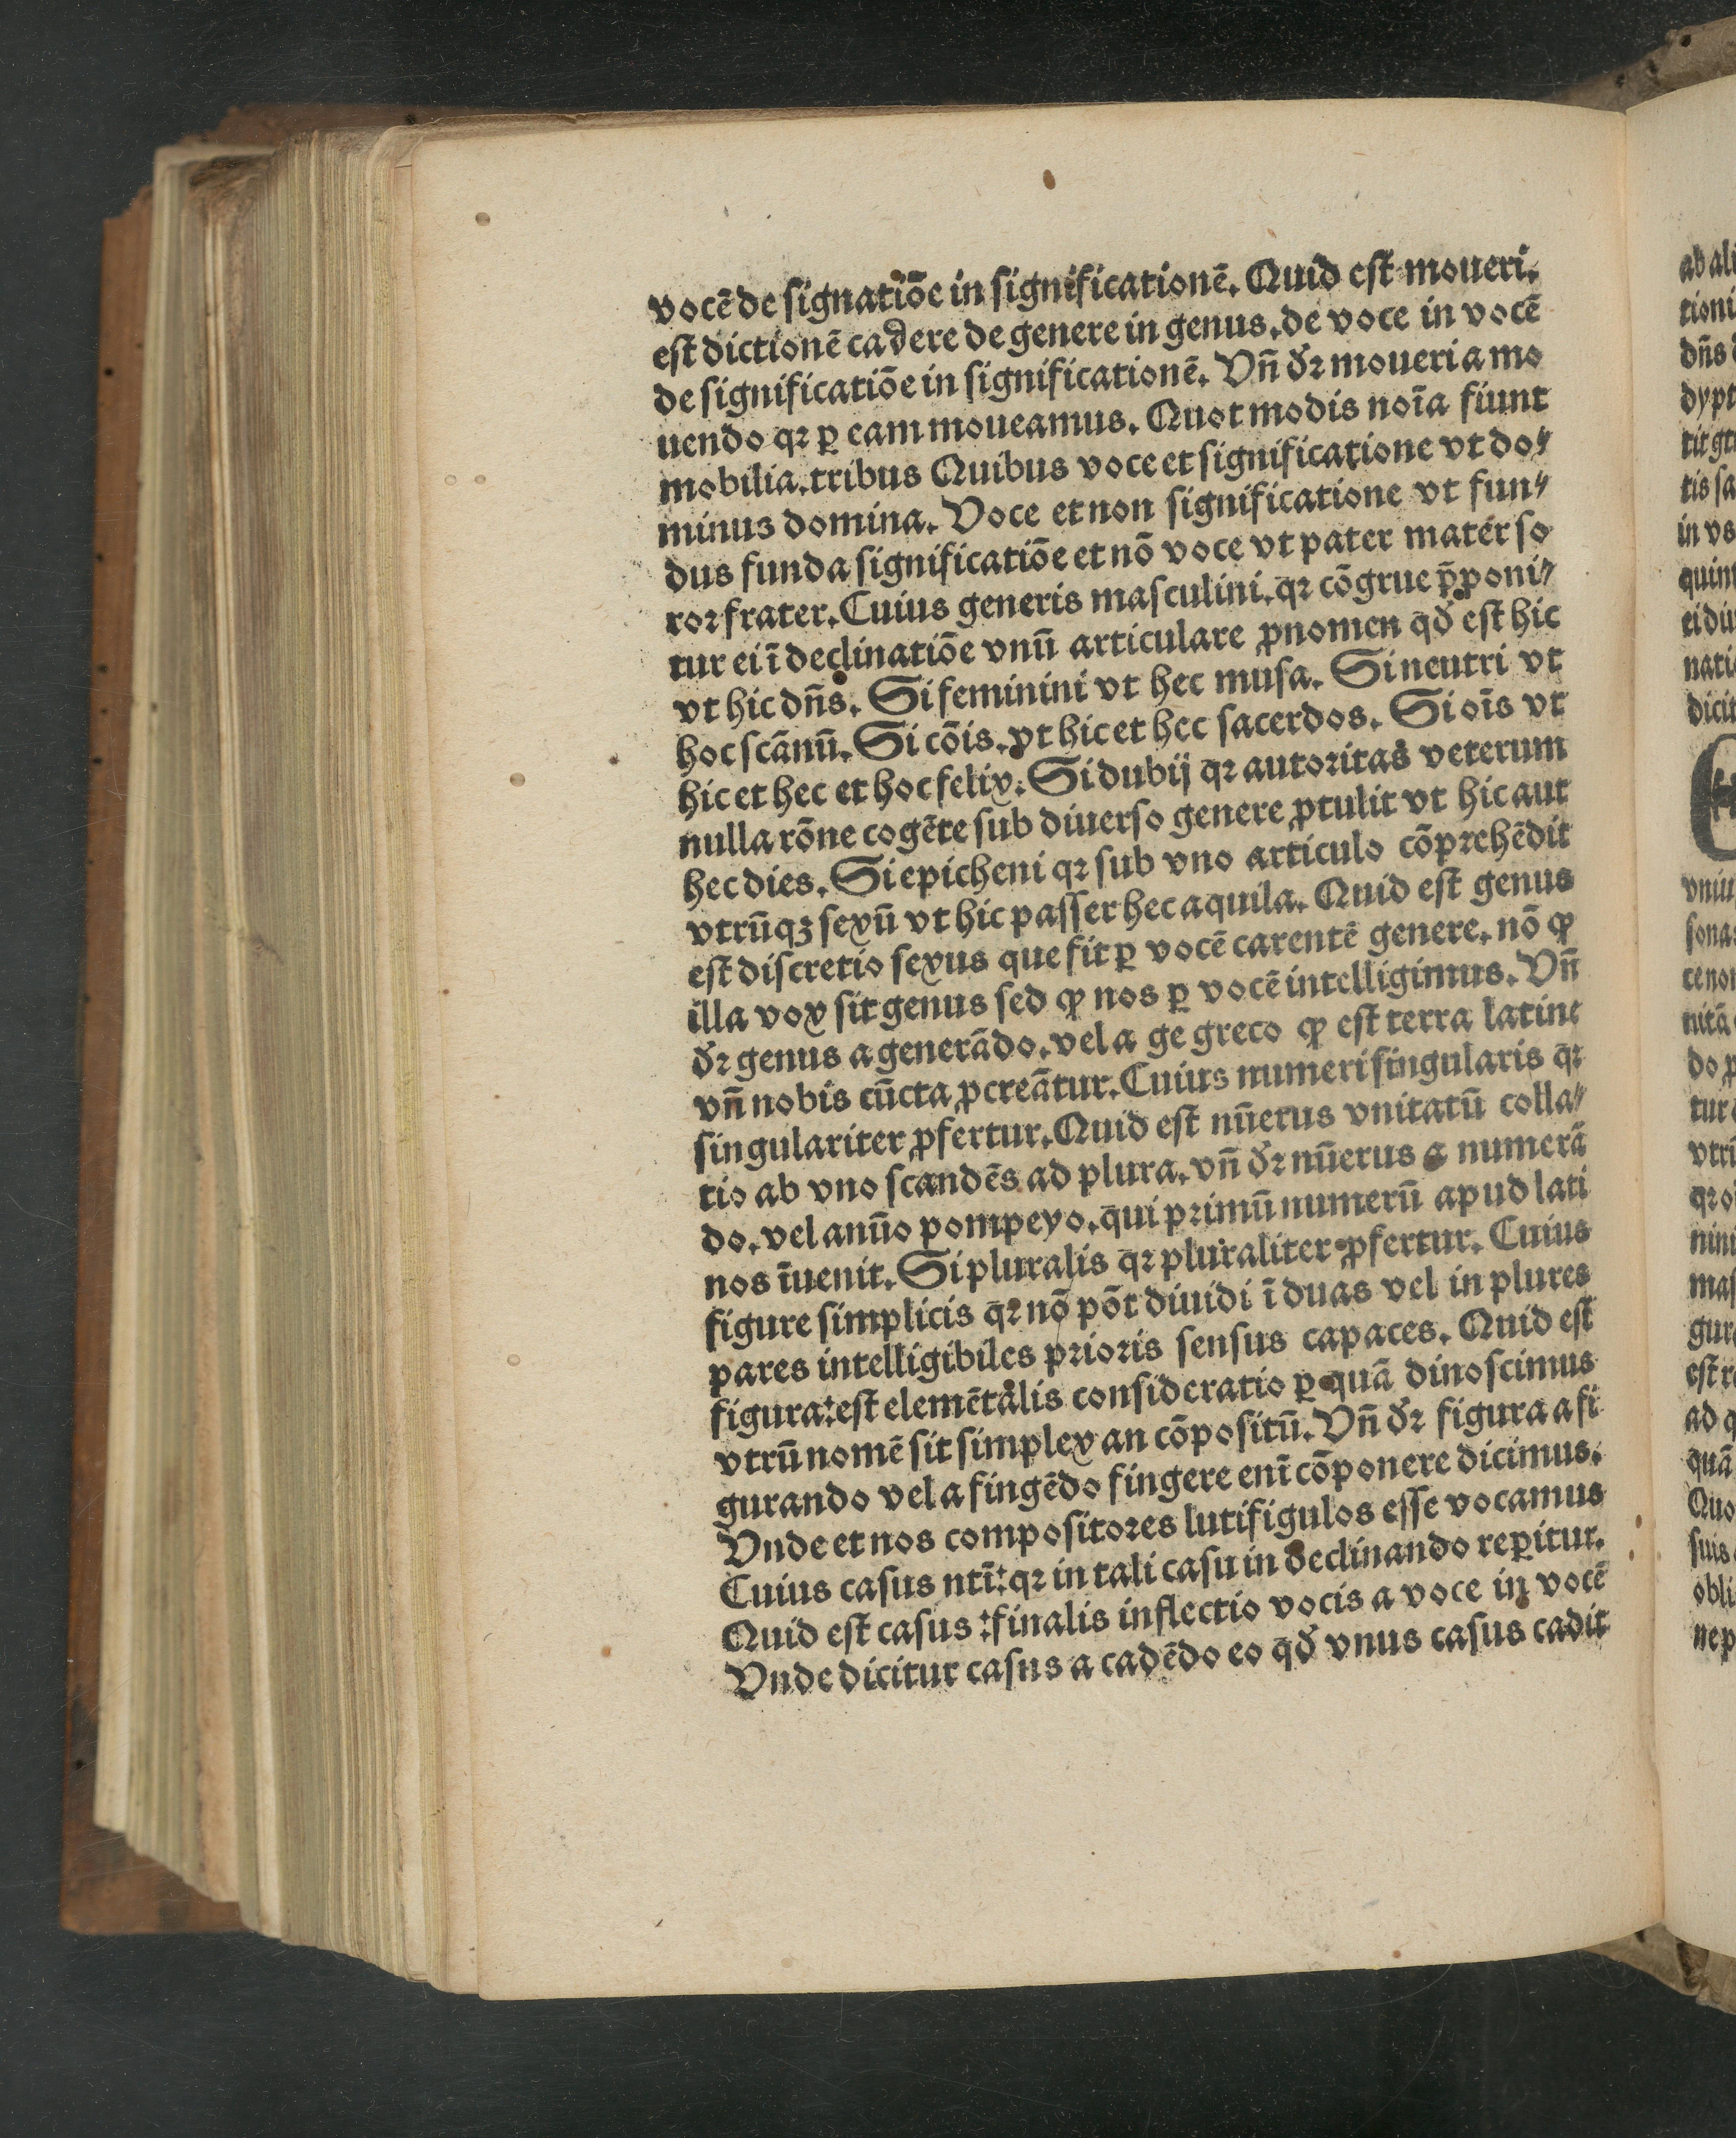 vocē de signatiōe in significationē. Quid est moueri.
est dictionē cadere de genere in genus. de voce in vocē
de significatiōe in significationē. Vñ dꝛ moueri a mo
uendo qꝛ ꝑ eam moueamus. Quot modis noīa fiunt
mobilia. tribus Quibus voce et significatione vt do⸗
minus domina. Voce et non significatione vt fun⸗
dus funda significatiōe et nō voce vt pater mater so
ror frater. Cuius generis masculini. qꝛ cōgrue p̄poni⸗
tur ei ī declinatiōe vnū articulare ꝓnomen qď est hic
vt hic dñs. Si feminini vt hec musa. Si neutri vt
hoc scānū. Si cōis. vt hic et hec sacerdos. Si oīs vt
hic et hec et hoc felix. Si dubij qꝛ autoritas veterum
nulla rōne cogēte sub diuerso genere ꝓtulit vt hic aut
hec dies. Si epicheni qꝛ sub vno articulo cōprehēdit
vtrūqꝫ sexū vt hic passer hec aquila. Quid est genus
est discretio sexus que fit ꝑ vocē carentē genere. nō ꝙ
illa vox sit genus sed ꝙ nos ꝑ vocē intelligimus. Vñ
dꝛ genus a generādo. vel a ge greco ꝙ est terra latine
vñ nobis cūcta ꝓcreātur. Cuius numeri singularis qꝛ
singulariter ꝓfertur. Quid est nūerus vnitatū colla⸗
tio ab vno scandēs ad plura. vñ dꝛ nūerus a numerā
do. vel a nūo pompeyo. qui primū numerū apud lati
nos īuenit. Si pluralis qꝛ pluraliter ꝓfertur. Cuius
figure simplicis qꝛ nō pōt diuidi ī duas vel in plures
pares intelligibiles prioris sensus capaces. Quid est
figura: est elemētalis consideratio ꝑ quā dinoscimus
vtrū nomē sit simplex an cōpositū. Vñ dꝛ figura a fi
gurando vel a fingēdo fingere enī cōponere dicimus.
Vnde et nos compositores lutifigulos esse vocamus
Cuius casus ntī: qꝛ in tali casu in declinando reꝑitur.
Quid est casus: finalis inflectio vocis a voce in vocē
Vnde dicitur casus a cadēdo eo qď vnus casus cadit